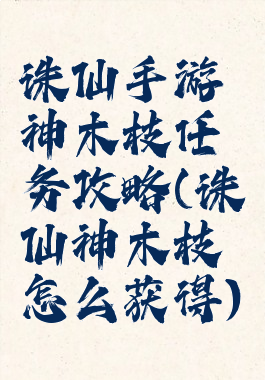 诛仙手游
神木枝任
务攻略(诛
仙神木枝
怎么获得)